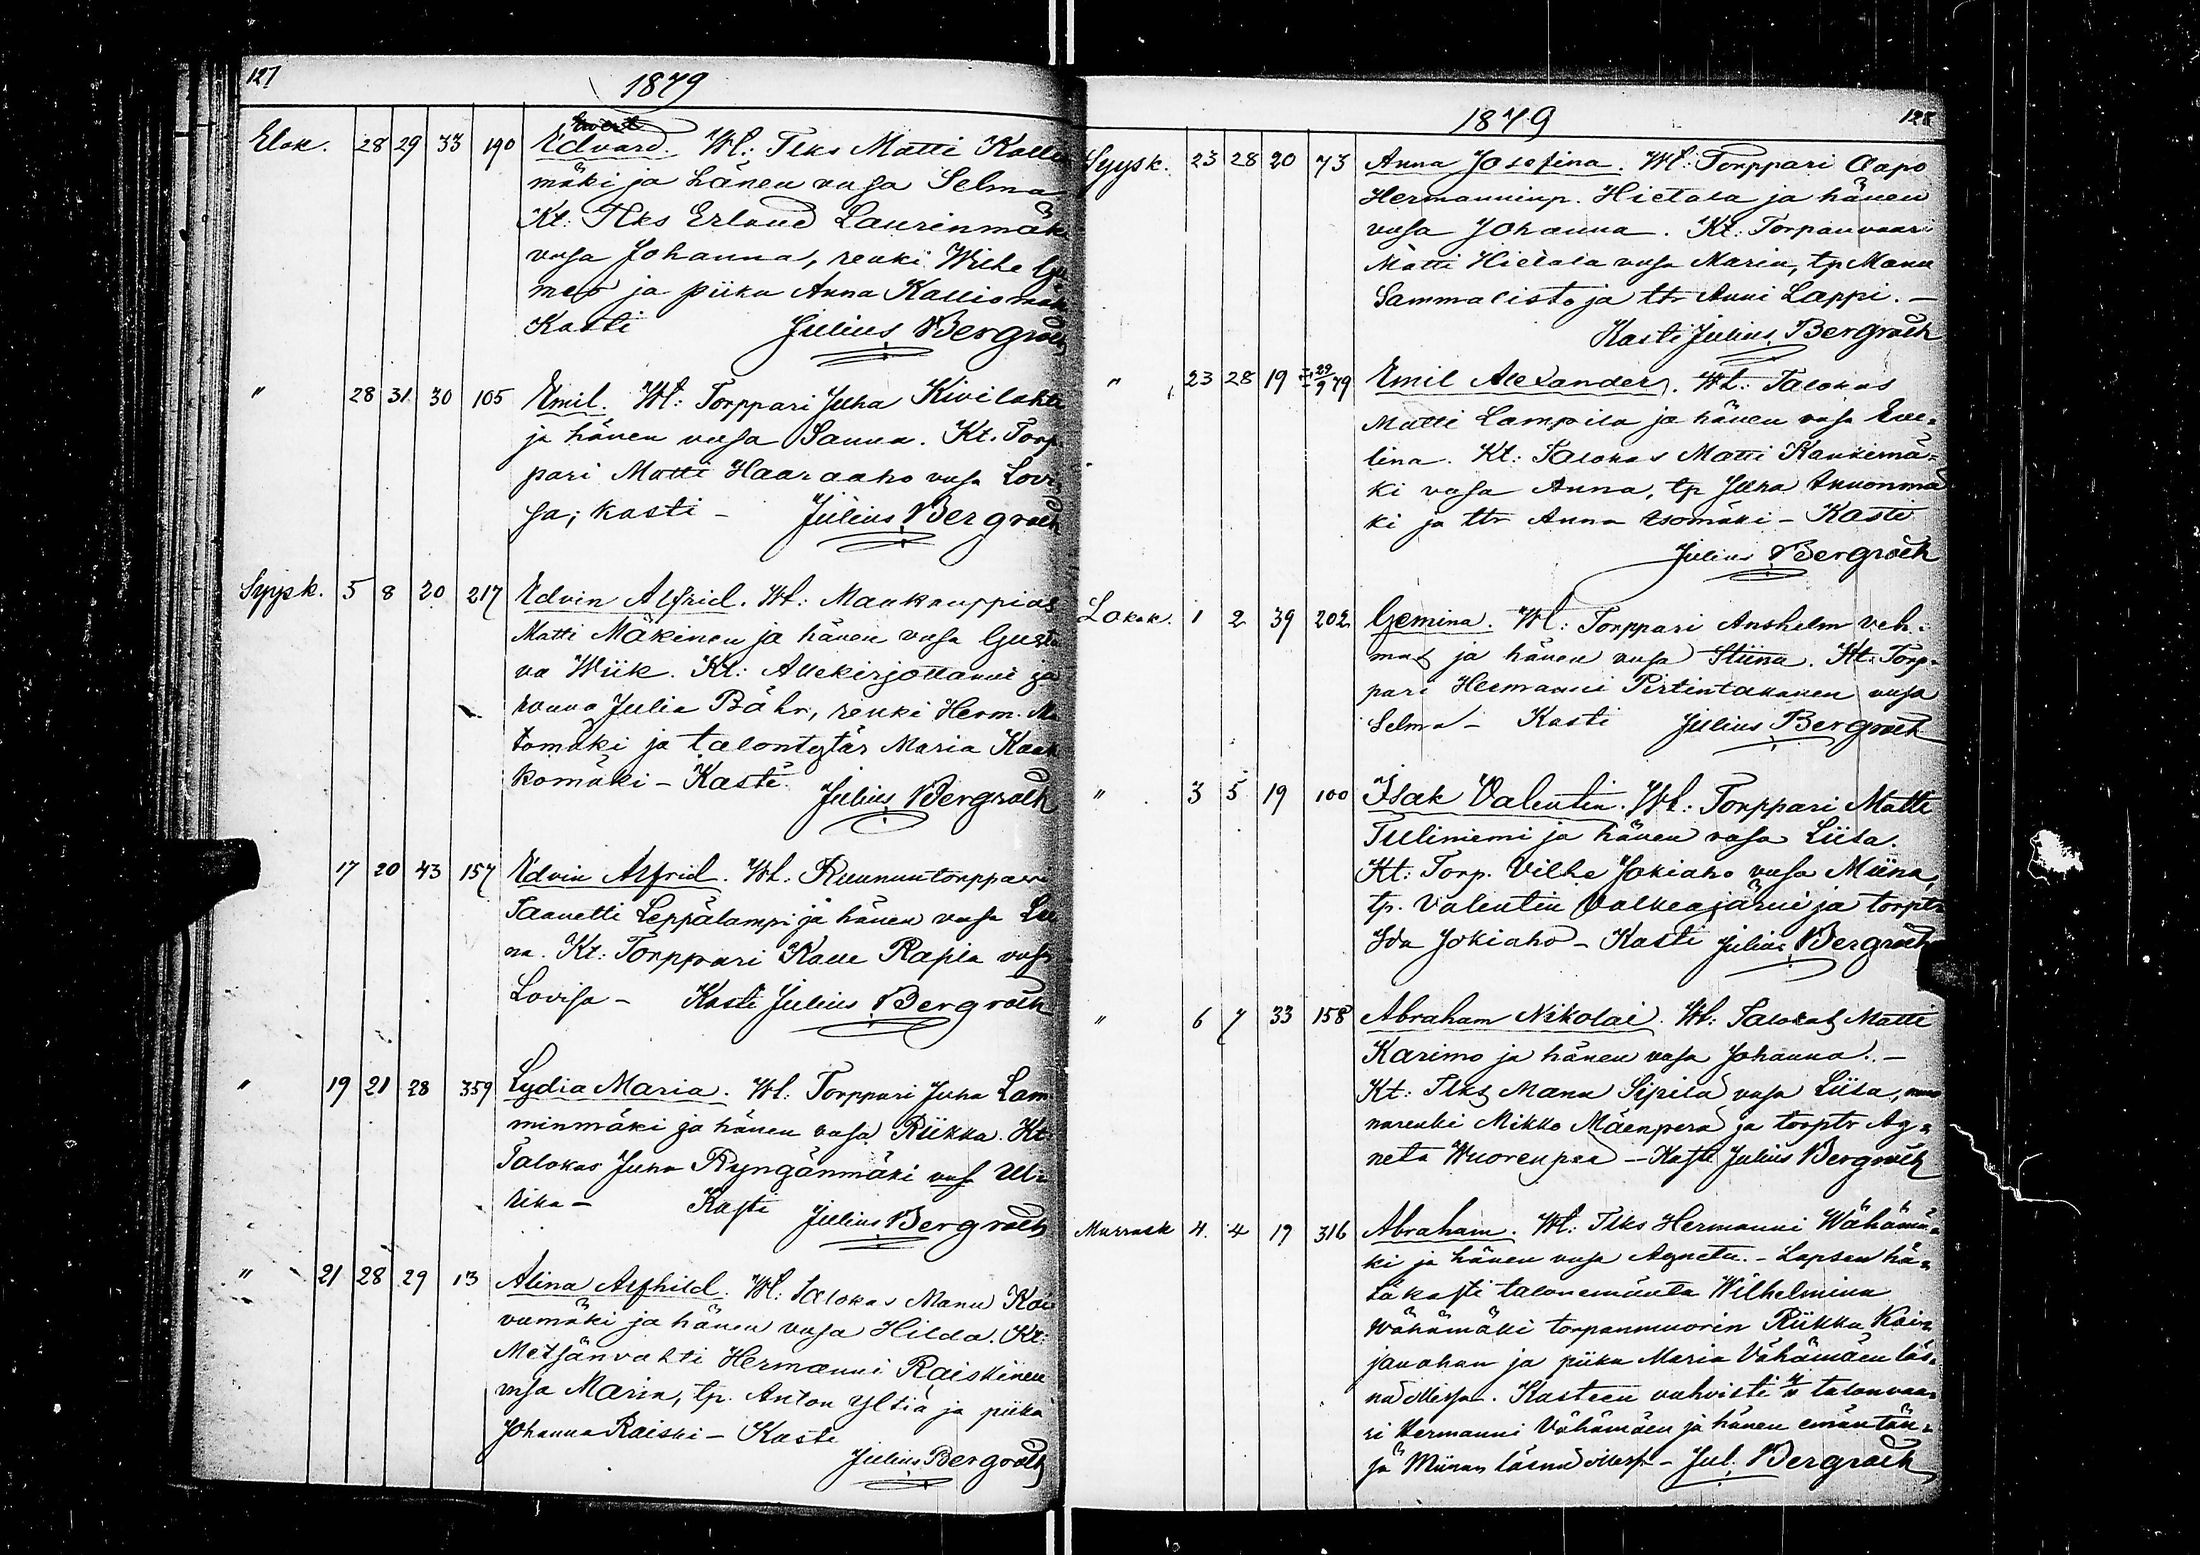 127
1879
Elok. 28 29 33 190 Edvard. Wt: Tlks Matti Kallio
mäki ja hänen vasa Selma
Kt: Tlks Erland Laurinmäki
vasa Johanna, renki Wilhe
ja piika Anna Kalliomäki
Kasti Julius Bergroth
" 28 31 30 105 Emil. Wt: Torppari Juha Kivilahti
ja hänen vasa Sanna. Kt. Torp
pari Matti Haaraaho vasa Lovi
sa; kasti - Julius Bergroth
Syysk. 5 8 20 217 Edvin Alfrid. Wt: Maakauppias
Matti Mäkinen ja hänen vasa Gusta
va Wiik. Kt: Allekirjottanut ja
rouva Julia Bähr, renki Herm.
tomäki ja talontytär Maria
komäki - Kasti Julius Bergroth
17 20 43 157 Edvin Alfrid. Wt. Ruununtorppari
Taavetti Leppälampi ja hänen vasa
na. Kt: Torppari Kalle Rapila vasa
Lovisa - Kasti Julius Bergroth
" 19 21 28 359 Lydia Maria. Wt: Torppari Juha Lam
minmäki ja hänen vasa Riikka. Kt:
Talokas Juha Ryngänmäki vasa Ul-
rika - Kasti Julius Bergroth
" 21 28 29 13 Alina Alfhild. Wt: Talokas Manu Koi
vumäki ja hänen vasa Hilda. Kt:
Metsänvahti Hermanni Raiskinen
vasa Maria, tp. Anton Yltiä ja piika
Johanna Raiski - Kasti
Julius Bergroth
1879
128
Syysk. 23 28 20 73 Anna Josefina. Wt: Torppari Aapo
Hermanninp. Hietala ja hänen
vasa Johanna. Kt: Torpanvaari
Matti Hietala vasa Maria, tp Manu
Sammalisto ja ttr Anni Lappi. -
Kasti Julius Bergroth
" 23 28 19 29/9 79 Emil Alexander. Wt: Talokas
Matti Lampila ja hänen vasa Eve-
lina. Kt: Talokas Matti Kaukemä-
ki vasa Anna, tp Juha
ki ja ttr Anna Isomäki - Kasti
Julius Bergroth
Lokak. 1 2 39 202 Gemina. Wt: Torppari Anshelm Veh-
mas ja hänen vasa Stiina. Kt: Torp-
pari Hermanni Pirtintakanen vasa
Selma - Kasti Julius Bergroth
" 3 5 19 100 Isak Valentin. Wt: Torppari Matti
Tuliniemi ja hänen vasa Liisa.
Kt: Torp. Vilhe Jokiaho vasa Miina,
tp. Valentin Valkeajärvi ja torptr
Ida Jokiaho - Kasti Julius Bergroth
" 6 7 33 158 Abraham Nikolai. Wt: Talokas Matti
Karimo ja hänen vasa Johanna. -
Kt: Tlks Manu Sipilä vasa Liisa,
narenki Mikko Mäenperä ja torptr Ag-
neta Wuorenpää - Kasti Julius Bergroth
Marrask 4. 4 19 316 Abraham. Wt: Tlks Hermanni Wähämä-
ki ja hänen vasa Agneta. - Lapsen hä-
täkasti talonemäntä Wilhelmina
Wähämäki torpanmuorin Riikka Koi-
janahan ja piika Maria Vähämäen läs-
nä ollessa. Kasteen vahvisti talonvaa-
ri Hermanni Vähämäen ja hänen emäntän-
sä Miinan läsnä olless. - Jul. Bergroth